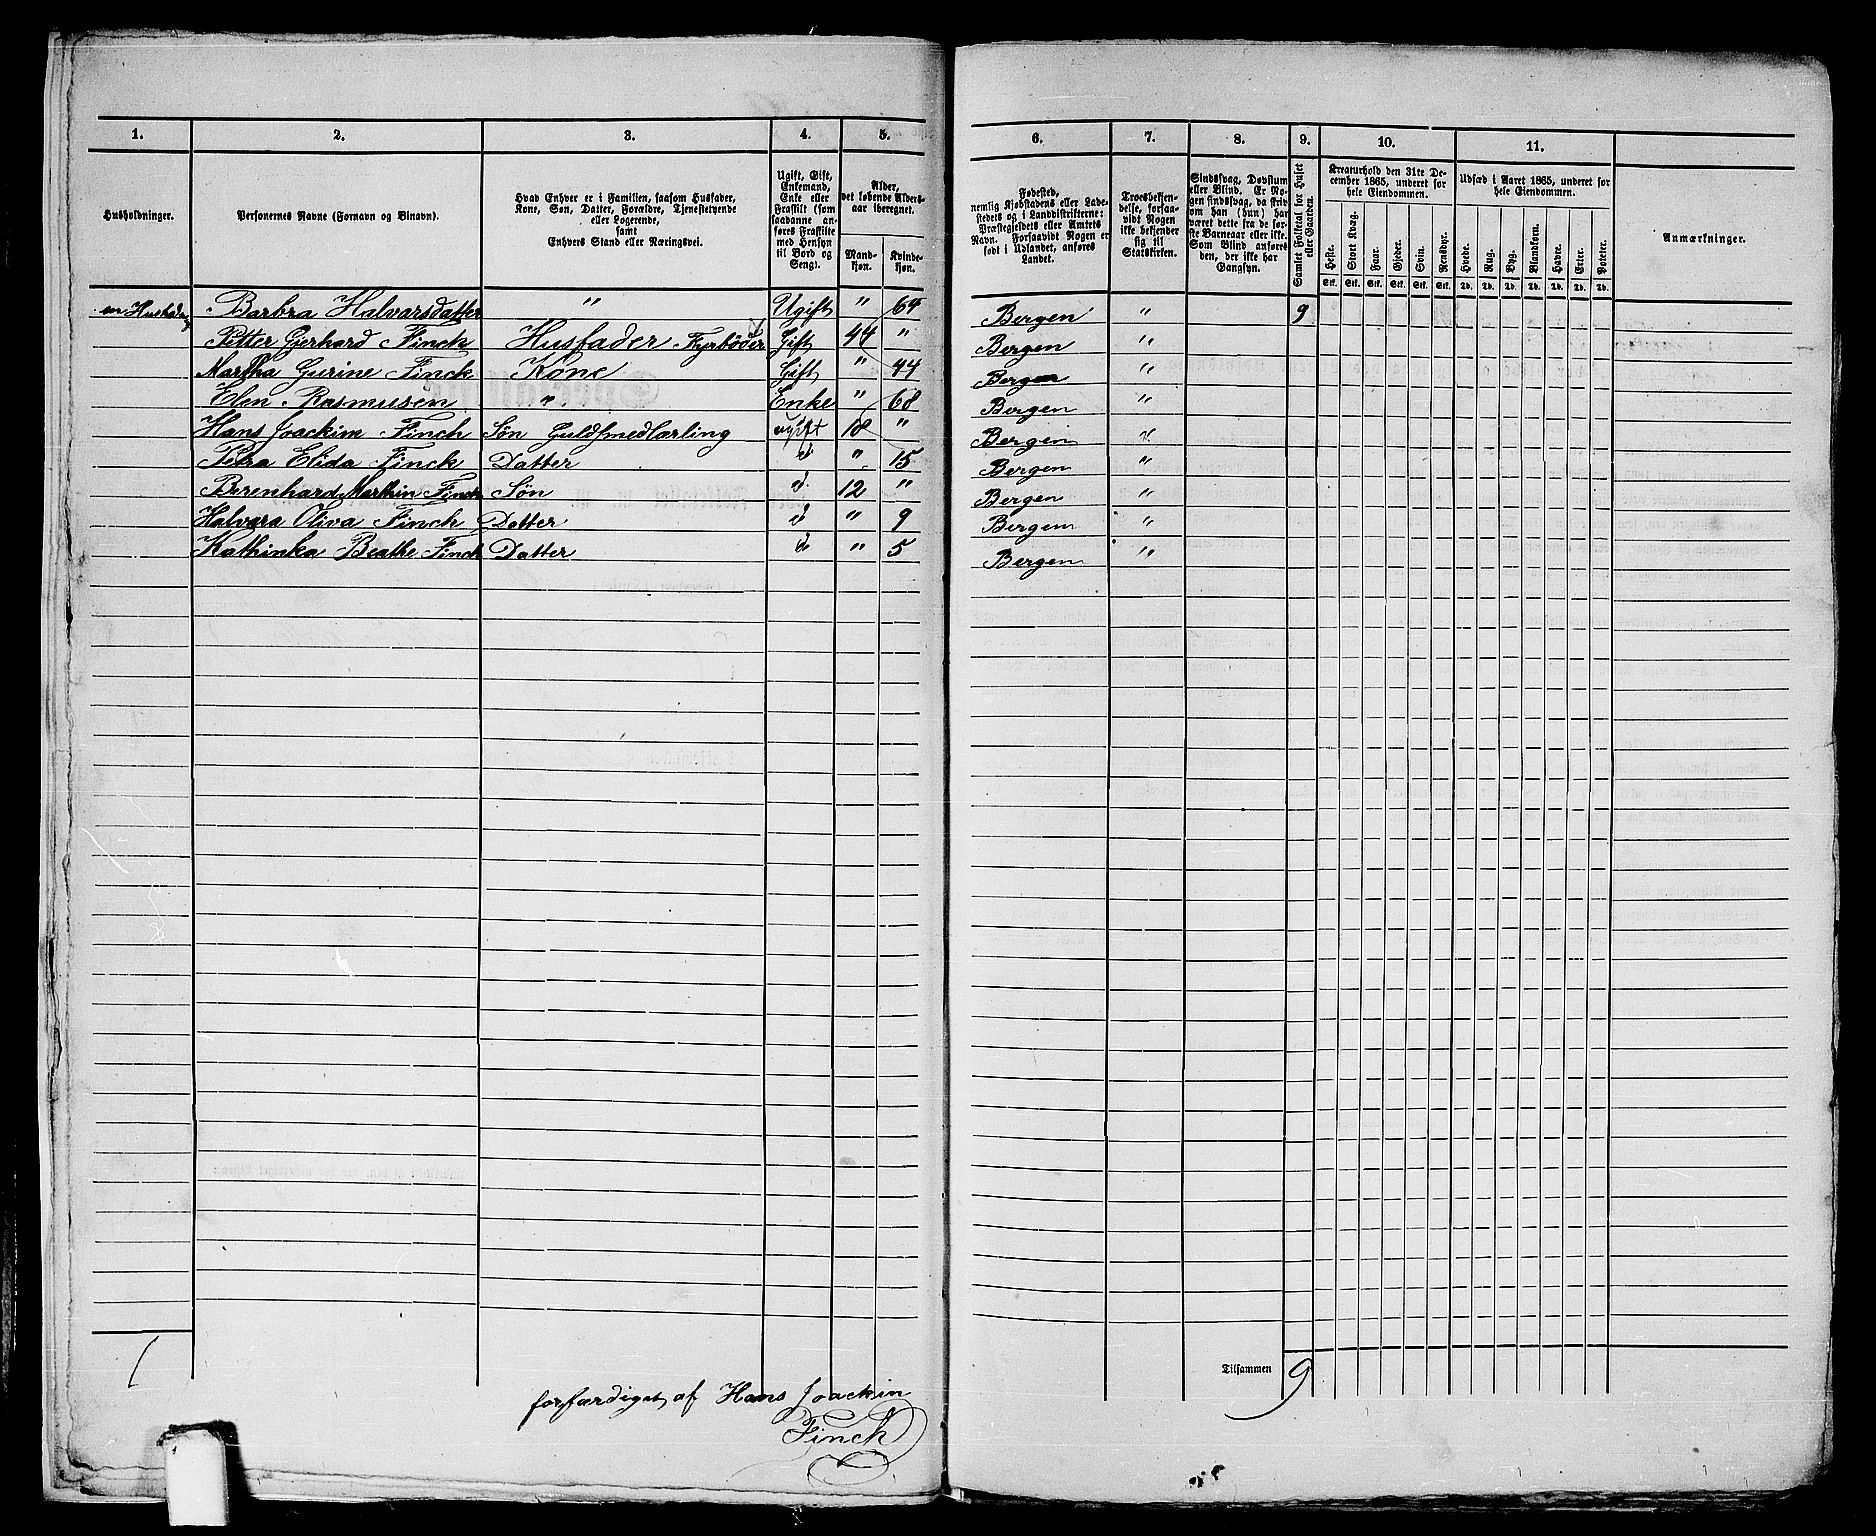 1. 2. 3. 4. 5. 6. 7. 8. 9. 10. 11.
Husholdninger.
Personernes Navne (Fornavn og Binavn).
Hvad Enhver er i Familien, saasom Husfader,
Kone, Søn, Datter, Forældre, Tjenestetyende
eller Logerende,
samt
Enhvers Stand eller Næringsvei.
Ugift, Gift,
Enkemand,
Enke eller
Fraskilt (som
saadanne an-
føres Fraskilte
med Hensyn
til Bord og
Seng).
Alder,
det løbende Alders-
aar iberegnet.
Mand-
kjøn.
Kvinde-
kjøn.
Fødested,
nemlig Kjøbstadens eller Lade-
stedets og i Landdistrikterne:
Præstegjeldets eller Amtets
Navn. Forsaavidt Nogen er
født i Udlandet, anføres
Landet.
Troesbekjen-
delse, forsaa-
vidt Nogen
ikke bekjender
sig til
Statskirken.
Sindssvag, Døvstum
eller Blind. Er No-
gen sindssvag, da skriv
om han (hun) har
været dette fra de før-
ste Barneaar eller ikke.
Som Blind anføres
den, der ikke har
Gangsyn.
Samlet Folketal for Huset
eller Gaarden.
Kreaturhold den 31te De-
cember 1865, underet for
hele Eiendommen.
Heste. Stort Kvæg. Faar. Gjeder. Svin. Rensdyr.
Stk. Stk. Stk. Stk. Stk. Stk.
Udsæd i Aaret 1865, underet for
hele Eiendommen.
Hvede. Rug. Byg. Blandkorn. Havre. Erter. Poteter.
Td. Td. Td. Td. Td. Td. Td.
Anmærkninger.
Barbra Halvarsdatter " Ugift " 64 Bergen " 9
Petter Gjerhard Finck Husfader Fyrbøder Gift 44 " Bergen "
Martha Gurine Finck Kone Gift " 44 Bergen "
Elen Rasmusen " Enke " 68 Bergen "
Hans Joackim Finch Søn Guldsmedlærling ugift 18 " Bergen "
Petra Elida Finck Datter " 15 Bergen "
Berenhard Marthin Finck Søn 12 " Bergen "
Halvara Oliva Finch Datter " 9 Bergen "
Kathinka Beathe Finch Datter " 5 Bergen "
Tilsammen 9
forfærdiget af Hans Joackim
Finch